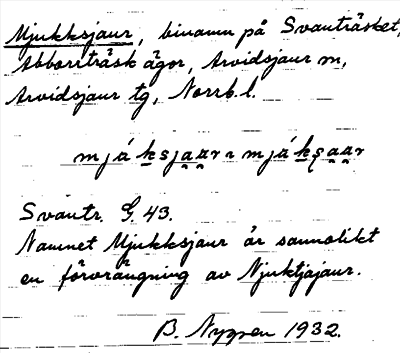 Mjukksjaur, binamn på Svanträsket,
Abborrträsk ägor, Arvidsjaur sn,
Arvidsjaur tg, Norrb. l.
mjáksjaar ~ mjáksaar
Svantr. G. 43.
Namnet Mjukksjaur är sannolikt
en förvrängning av Njuktjajaur.
B. Nygren 1932.